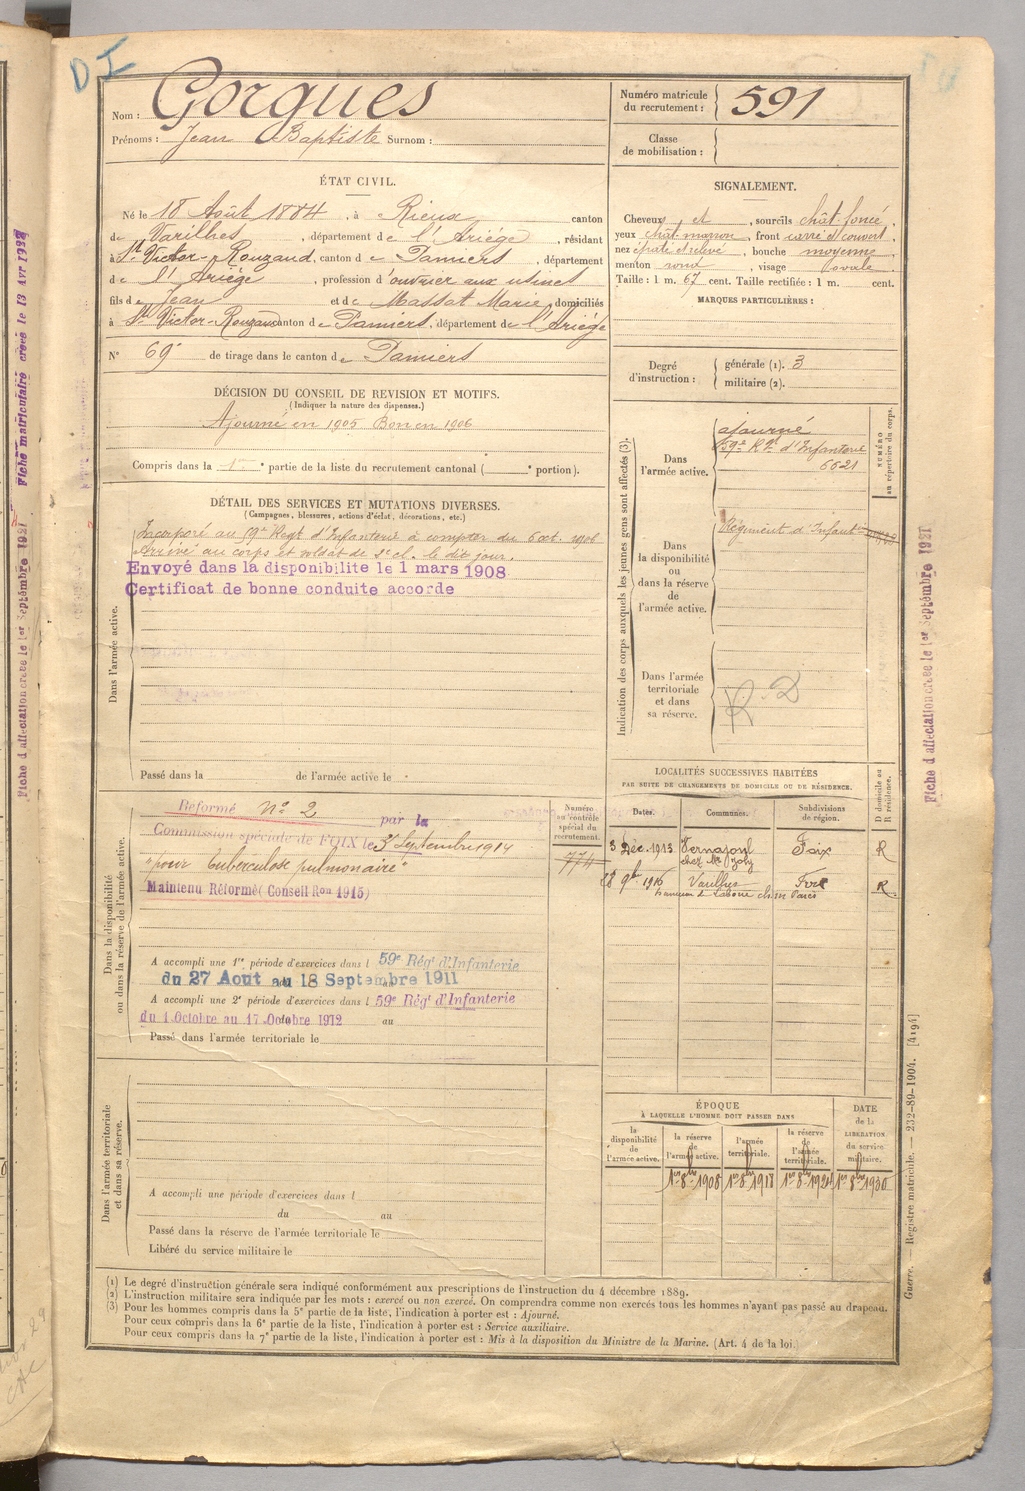 DI
Nom : Gorgues
Prénoms : Jean Baptiste Surnom :
Numéro matricule du recrutement : 591
Classe de mobilisation :
ÉTAT CIVIL.
Né le 18 Août 1884, à Rieux canton
de Varilhes, département de l'Ariège, résidant
à St Victor-Rouzaud, canton de Pamiers, département
de l'Ariège, profession d'ouvrier aux usines
fils de Jean et de Massat Marie, domiciliés
à St Victor-Rouzaud canton de Pamiers, département de l'Ariège
N° 69 de tirage dans le canton de Pamiers
SIGNALEMENT.
Cheveux et, sourcils chât-foncé
yeux chât-marron, front carré et couvert,
nez épaté et relevé, bouche moyenne
menton rond, visage ovale
Taille : 1 m. 67 cent. Taille rectifiée : 1 m. cent.
MARQUES PARTICULIÈRES :
Degré d'instruction : générale (1). 3
militaire (2).
DÉCISION DU CONSEIL DE REVISION ET MOTIFS.
(Indiquer la nature des dispenses.)
Ajourné en 1905 Bon en 1906
Compris dans la 1re partie de la liste du recrutement cantonal ( e portion).
DÉTAIL DES SERVICES ET MUTATIONS DIVERSES.
(Campagnes, blessures, actions d'éclat, décorations, etc.)
Dans l'armée active.
Incorporé au 59e Regt d'Infanterie à compter du 6 oct. 1906
Arrivé au corps et soldat de 2e cl. le dit jour.
Envoyé dans la disponibilite le 1 mars 1908
Certificat de bonne conduite accorde
Passé dans la de l'armée active le
Indication des corps auxquels les jeunes gens sont affectés (3).
NUMÉRO au répertoire du corps.
Dans l'armée active.
ajourné
59e Rt d'Infanterie
6621
Dans la disponibilité ou dans la réserve de l'armée active.
Régiment d'Infant
Dans l'armée territoriale et dans sa réserve.
R D
Dans la disponibilité ou dans la réserve de l'armée active.
Réformé n° 2 par la
Commission spéciale de FOIX le 3 Septembre 1914
"pour tuberculose pulmonaire"
Maintenu Réformé (Conseil Ron 1915)
Numéro au contrôle spécial du recrutement.
774
A accompli une 1re période d'exercices dans l 59e Régt d'Infanterie
du 27 Aout au 18 Septembre 1911
A accompli une 2e période d'exercices dans l 59e Régt d'Infanterie
du 1 Octobre au 17 Octobre 1912 au
Passé dans l'armée territoriale le
LOCALITÉS SUCCESSIVES HABITÉES
PAR SUITE DE CHANGEMENTS DE DOMICILE OU DE RÉSIDENCE.
Dates. Communes. Subdivisions de région. D domicile ou R résidence.
3 Déc. 1913 Vernajoul Foix R
chez Mr
18 9bre 1916 Varilhes Foix R
ÉPOQUE
À LAQUELLE L'HOMME DOIT PASSER DANS
la disponibilité de l'armée active.
la réserve de l'armée active.
l'armée territoriale.
la réserve de l'armée territoriale.
DATE de la LIBÉRATION du service militaire.
1er 8bre 1908 1er 8bre 1918 1er 8bre 1924 1er 8bre 1930
Dans l'armée territoriale et dans sa réserve.
A accompli une période d'exercices dans l
du au
Passé dans la réserve de l'armée territoriale le
Libéré du service militaire le
(1) Le degré d'instruction générale sera indiqué conformément aux prescriptions de l'instruction du 4 décembre 1889.
(2) L'instruction militaire sera indiquée par les mots : exercé ou non exercé. On comprendra comme non exercés tous les hommes n'ayant pas passé au drapeau.
(3) Pour les hommes compris dans la 5e partie de la liste, l'indication à porter est : Ajourné.
Pour ceux compris dans la 6e partie de la liste, l'indication à porter est : Service auxiliaire.
Pour ceux compris dans la 7e partie de la liste, l'indication à porter est : Mis à la disposition du Ministre de la Marine. (Art. 4 de la loi.)
Guerre. — Registre matricule. — 232-89-1904. [4194]
Fiche d affectation creee le 1er Septembre 1921
Fiche matriculaire creee le 13 Avr 1932
Fiche d affectation creee le 1er Septembre 1921